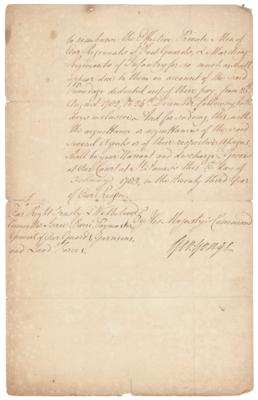 to reimburse the Effective Private Men of
Our Regiments of Foot Guards, & Marching
Regiments of Infantry for so much as shall
appear due to them on account of the said
Poundage deducted out of their pay, from 25th
August 1782, to 24th December following both
days inclusive. And for so doing this, with
the acquittance or acquittances of the said
several Agents or of their respective Assigns
shall be your Warrant and discharge. Given
at Our Court at St. James's this Day of
February 1783, in the twenty third Year
of Our Reign.
Our Right Trusty & Wellbeloved
Isaac Barré, Paymaster
General of Our Guards, Garrisons,
and Land Forces.
By His Majesty's Command
Geo: Yonge